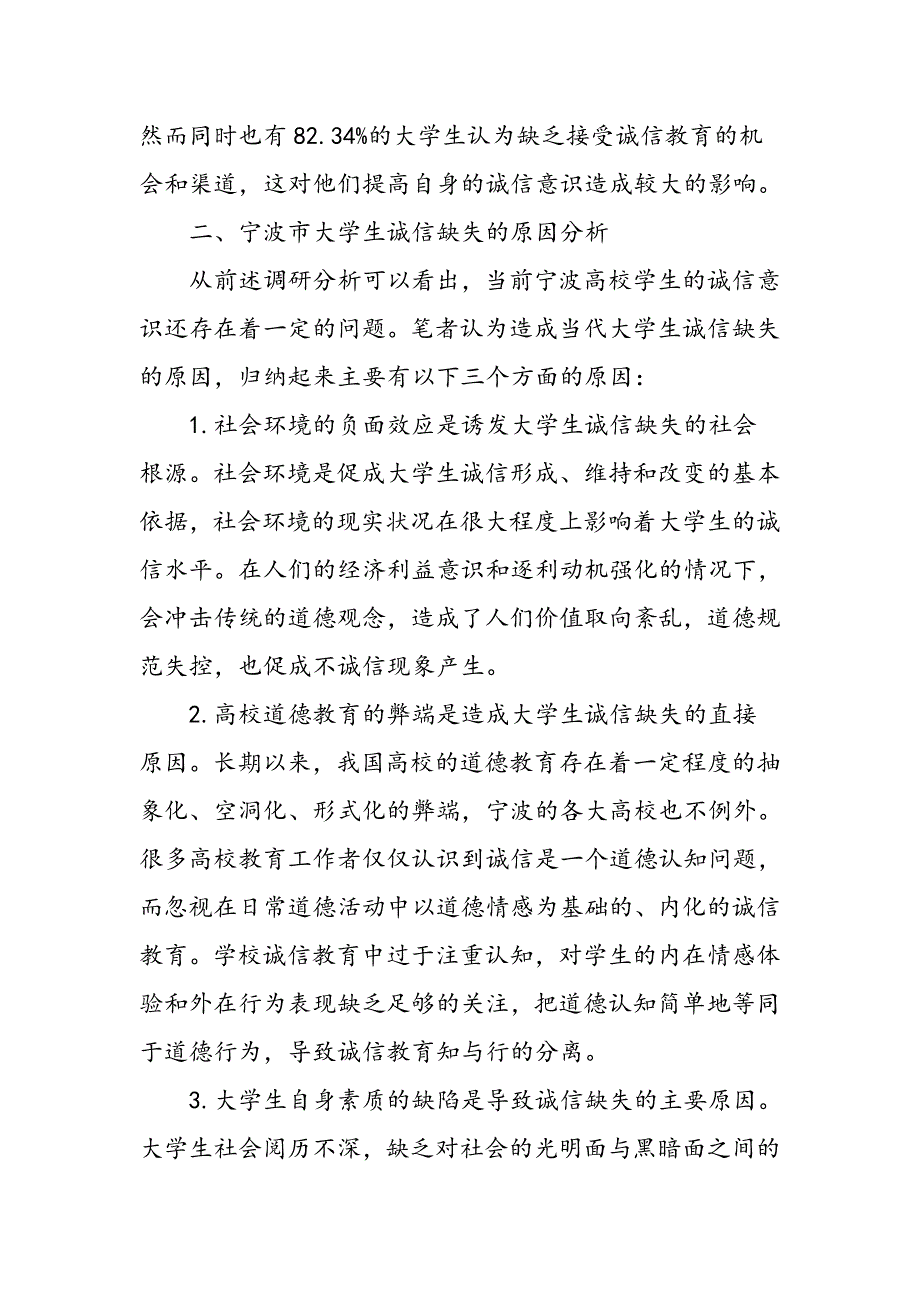 然而同时也有 82.34%的大学生认为缺乏接受诚信教育的机
会和渠道，这对他们提高自身的诚信意识造成较大的影响。
二、宁波市大学生诚信缺失的原因分析
从前述调研分析可以看出，当前宁波高校学生的诚信意
识还存在着一定的问题。笔者认为造成当代大学生诚信缺失
的原因，归纳起来主要有以下三个方面的原因：
1.社会环境的负面效应是诱发大学生诚信缺失的社会
根源。社会环境是促成大学生诚信形成、维持和改变的基本
依据，社会环境的现实状况在很大程度上影响着大学生的诚
信水平。在人们的经济利益意识和逐利动机强化的情况下，
会冲击传统的道德观念，造成了人们价值取向紊乱，道德规
范失控，也促成不诚信现象产生。
2.高校道德教育的弊端是造成大学生诚信缺失的直接
原因。长期以来，我国高校的道德教育存在着一定程度的抽
象化、空洞化、形式化的弊端，宁波的各大高校也不例外。
很多高校教育工作者仅仅认识到诚信是一个道德认知问题，
而忽视在日常道德活动中以道德情感为基础的、内化的诚信
教育。学校诚信教育中过于注重认知，对学生的内在情感体
验和外在行为表现缺乏足够的关注，把道德认知简单地等同
于道德行为，导致诚信教育知与行的分离。
3.大学生自身素质的缺陷是导致诚信缺失的主要原因。
大学生社会阅历不深，缺乏对社会的光明面与黑暗面之间的